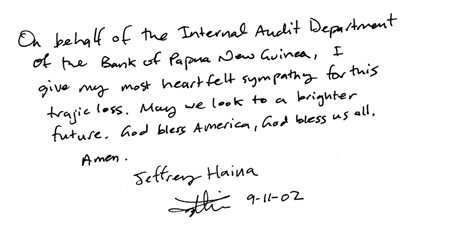 On behalf of the Internal Audit Department
of the Bank of Papua New Guinea, I
give my most heartfelt sympathy for this
tragic loss. May we look to a brighter
future. God bless America, God bless us all.
Amen.
Jeffrey Haina
9-11-02